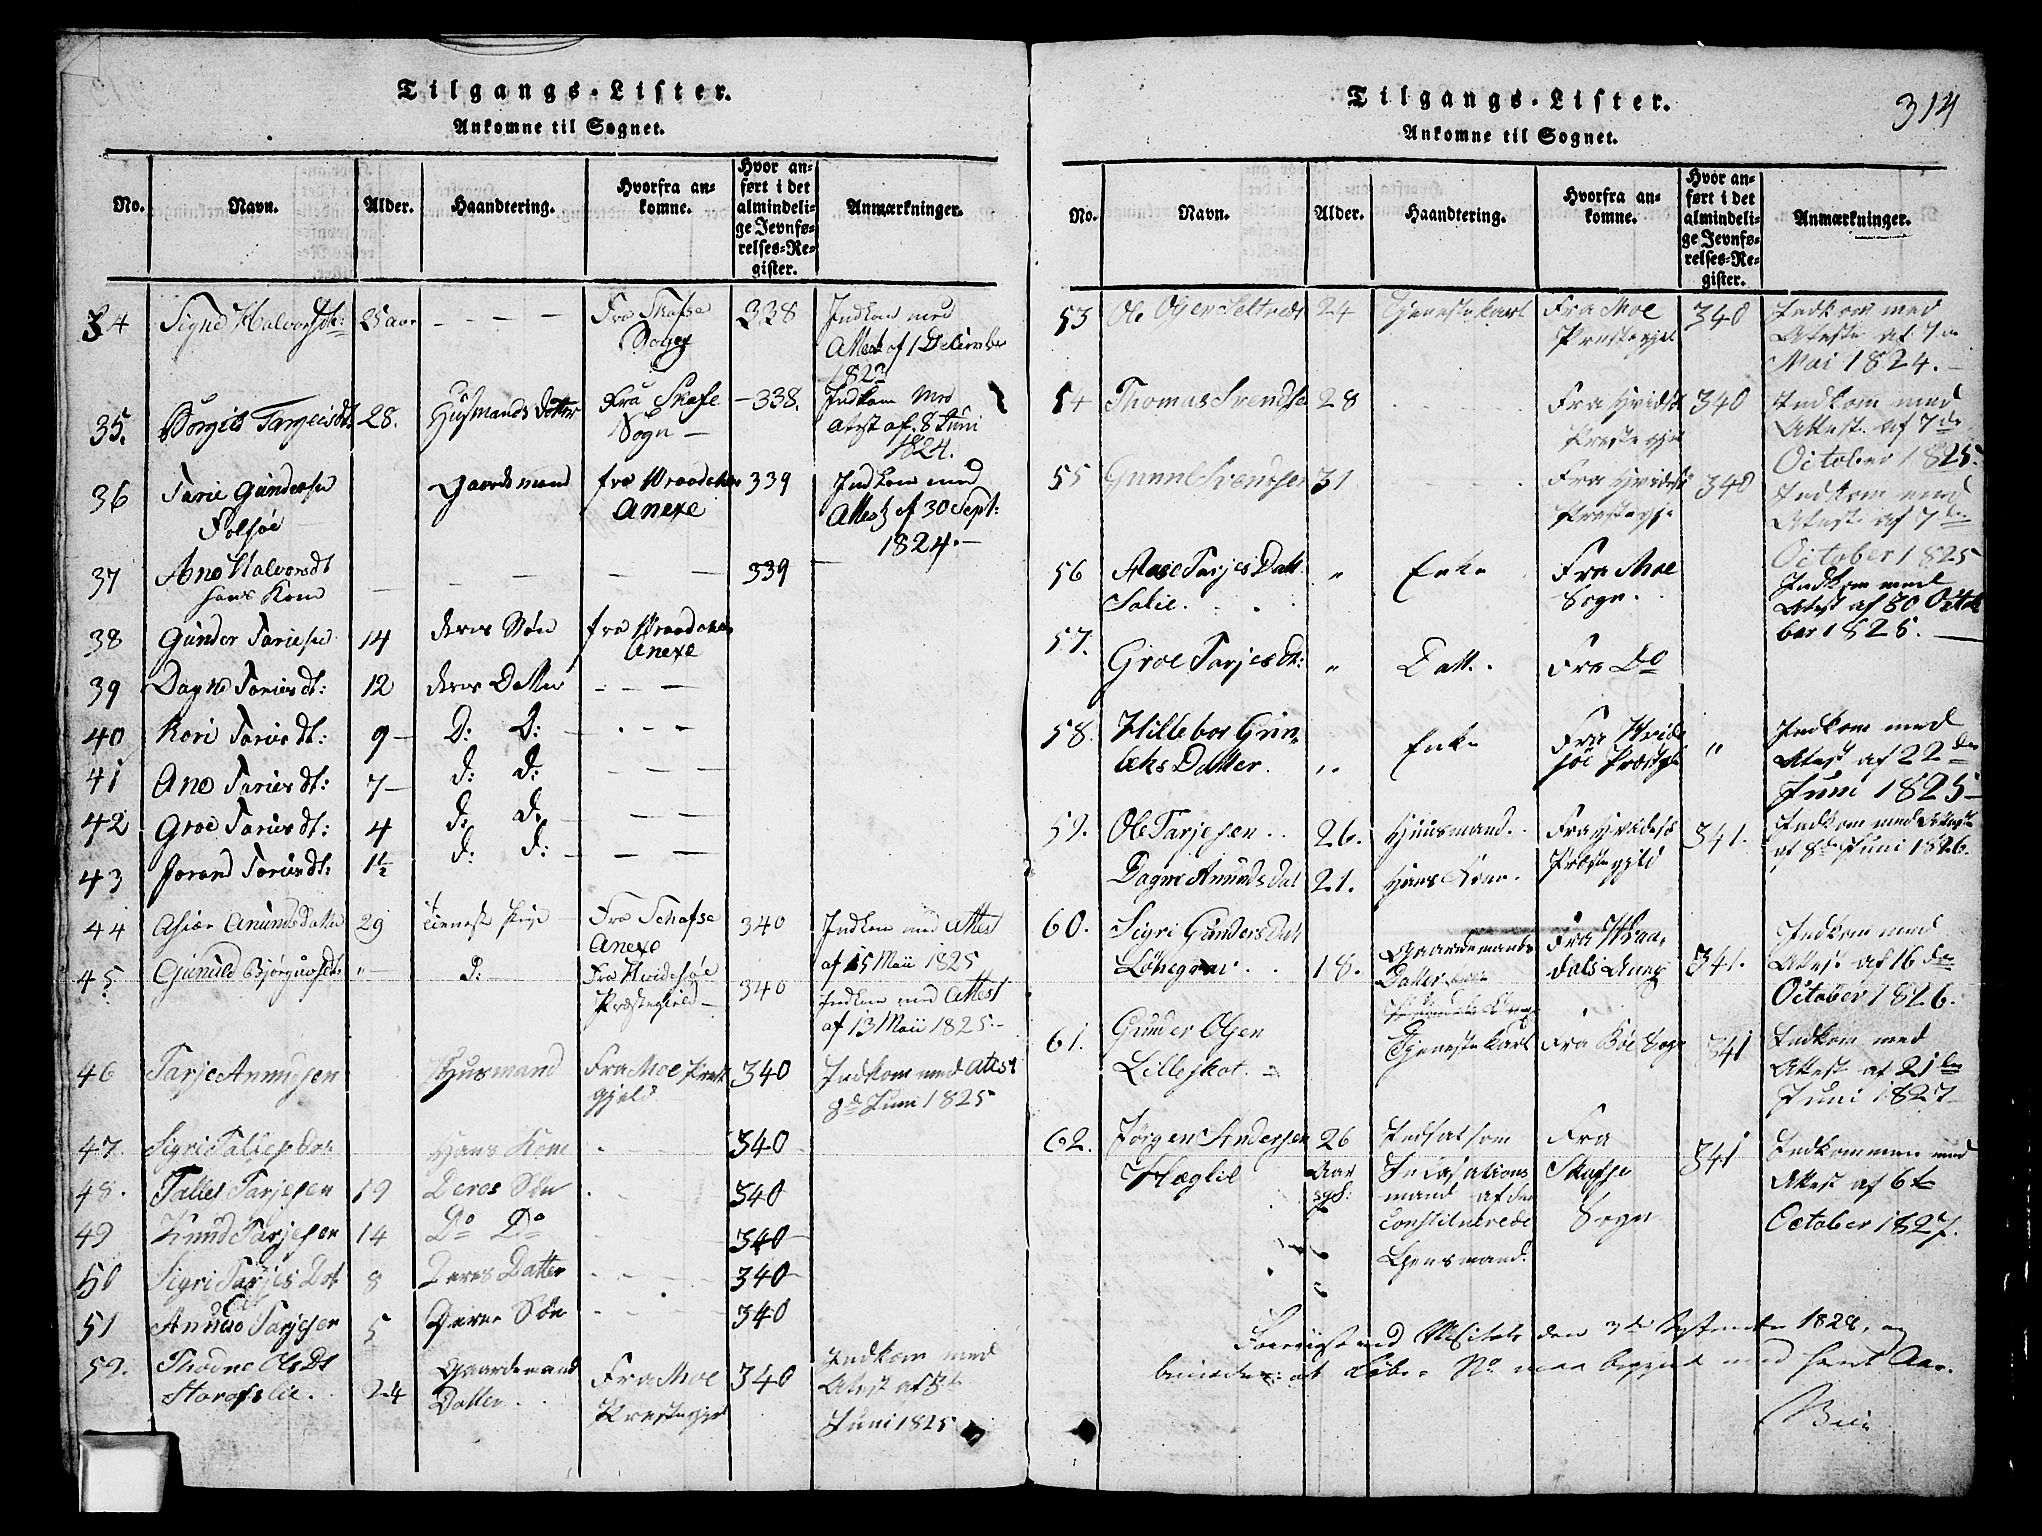 Tilgangs-Lister.
Ankomne til Sognet.
No. Navn. Alder. Haandtering. Hvorfra ankomne. Hvor anført i det almindelige Jevnførelses-Register. Anmærkninger.
34 Signe Halvorsdt: 25 aar — — — Fra Skafse Sogn 338 Indkom med Attest af 1 December
35. Torgeisdt 28. Husmands Datter Fra Skafse Sogn — 338. Indkom Med Atest af 8 Juni 1824.
36 Tarie Gundersen Folsøe Gaardmand fra Wraadahls Anexe 339 Indkom med Attest af 30 Sept: 1824. —
37 Ane Halvorsdt hans Kone — — — 339 —
38 Gunder Tariesen 14 deres Søn fra Wraadahls Anexe
39 Dagne Tariesdt: 12 deres Datter — — —
40 Kari Tariesdt: 9 — D: D: — — —
41 Ane Tariesdt: 7 — d: D: — — —
42 Groe Tariesdt: 4 d: D: — — —
43 Jorand Tariesdt: 1½ d: D: — — —
44 Anunds Datter 29 Tieneste Pige Fra Schafse Anexe 340 Indkom med Attest af 15 Maii 1825
45. Gunild Bjørgufsdt „— D: Fra Hvidesøe Præstegield — 340 Indkom med Attest af 13 Maii 1825 —
46 Tarje Anundsen Husmand Fra Moe Prest gjeld 340 Indkom med Attest 8de Juni 1825
47. Sigri Hans Kone - — 340
48. Tallef Tarjesen 19 Deres Søn - 340
49 Knud Tarjesen 14 Do Do 340
50 Sigri Tarjes Dot 8 Deres Datter - - - 340
51 Anund Tarjesen 5 Deres Søn - - - 340
52. Olsdt 24 Gaardmand Datter Fra Moe Prestegjel 340 Indkom med Atest af 3de Juni 1825
Tilgangs-Lister. 314
Ankomne til Sognet.
No. Navn. Alder. Haandtering. Hvorfra ankomne. Hvor anført i det almindelige Jevnførelses-Register. Anmærkninger.
53 Ole Olsen 24 Tjenestekarl Fra Moe Prestegjel 340 Indkom med Atest af 7de Mai 1824. —
54 Thomas Svendsen 28 Fra Hvides Prestegje 340 Indkom med Attest af 7de October 1825.
55 Svendsen 31 Fra Hvides Prestegje 340 Indkom med Atest af 7de October 1825
56 Aase Tarjes Datt. „ Enke Fra Moe Sogn. Indkom med Atest af 30 October 1825. —
57. Groe Tarjesdt: „ Datt. Fra Do
58. Hillebor Gunleks Datter. „ Enke Fra Hvidesøe Præstgje „ Indkom med Atest af 22de Juni 1825 —
59. Ole Tarjesen 26. Huusmand. Fra Hvidesø Præstegjeld 341. Indkom med Attest af 8de Juni 1826.
Dagne Anunds Dat 21. Hans Kone.
60. Sigri Gunders Dat 18. Gaardmands Datter Fra Wraadals Anex 341. Indkom med Attest af 16de October 1826.
61. Gunder Olsen Lilleskot. Tjenestekarl Fra Bøe Sogn 341 Indkom med Atest af 21de Juni 1827
62. Jørgen Andersen Hæglie 26 Aar Indsat som mand af den constituerede Lensmand. Fra Skafse Sogn 341 Indkommen med Attest af 6te October 1827.
ved den 3de September 1828,
at No med